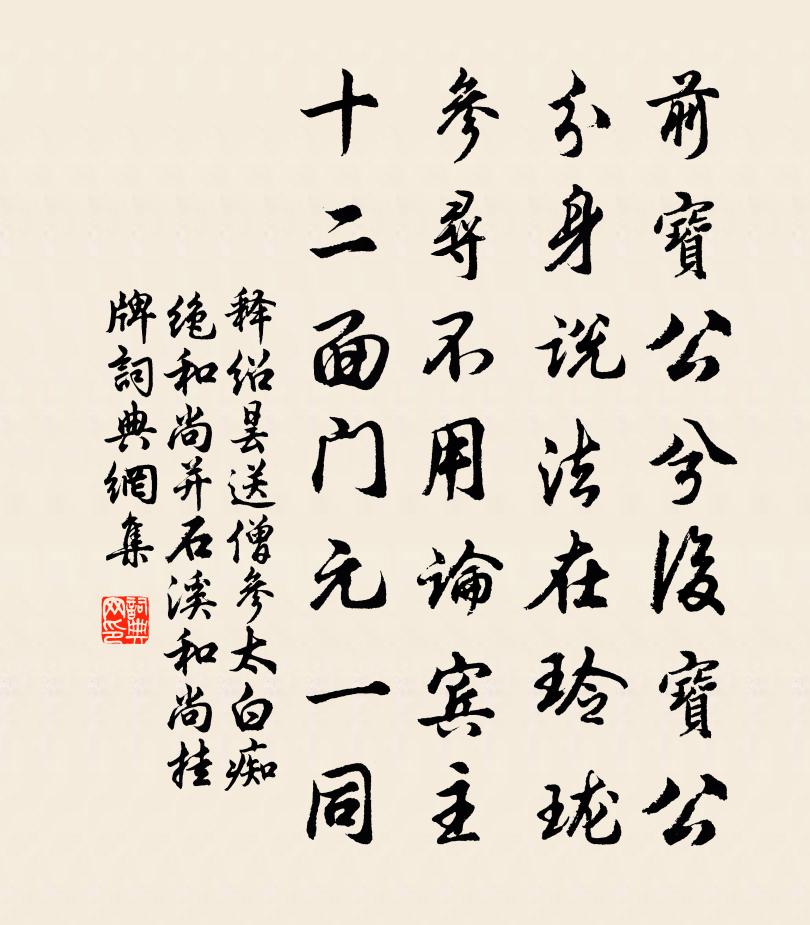 前寶公兮後寶公
分身说法在玲珑
參尋不用論賓主
十二面门元一同
释绍昙送僧參太白痴
绝和尚并石溪和尚挂
牌詞典網集
詞典
网印